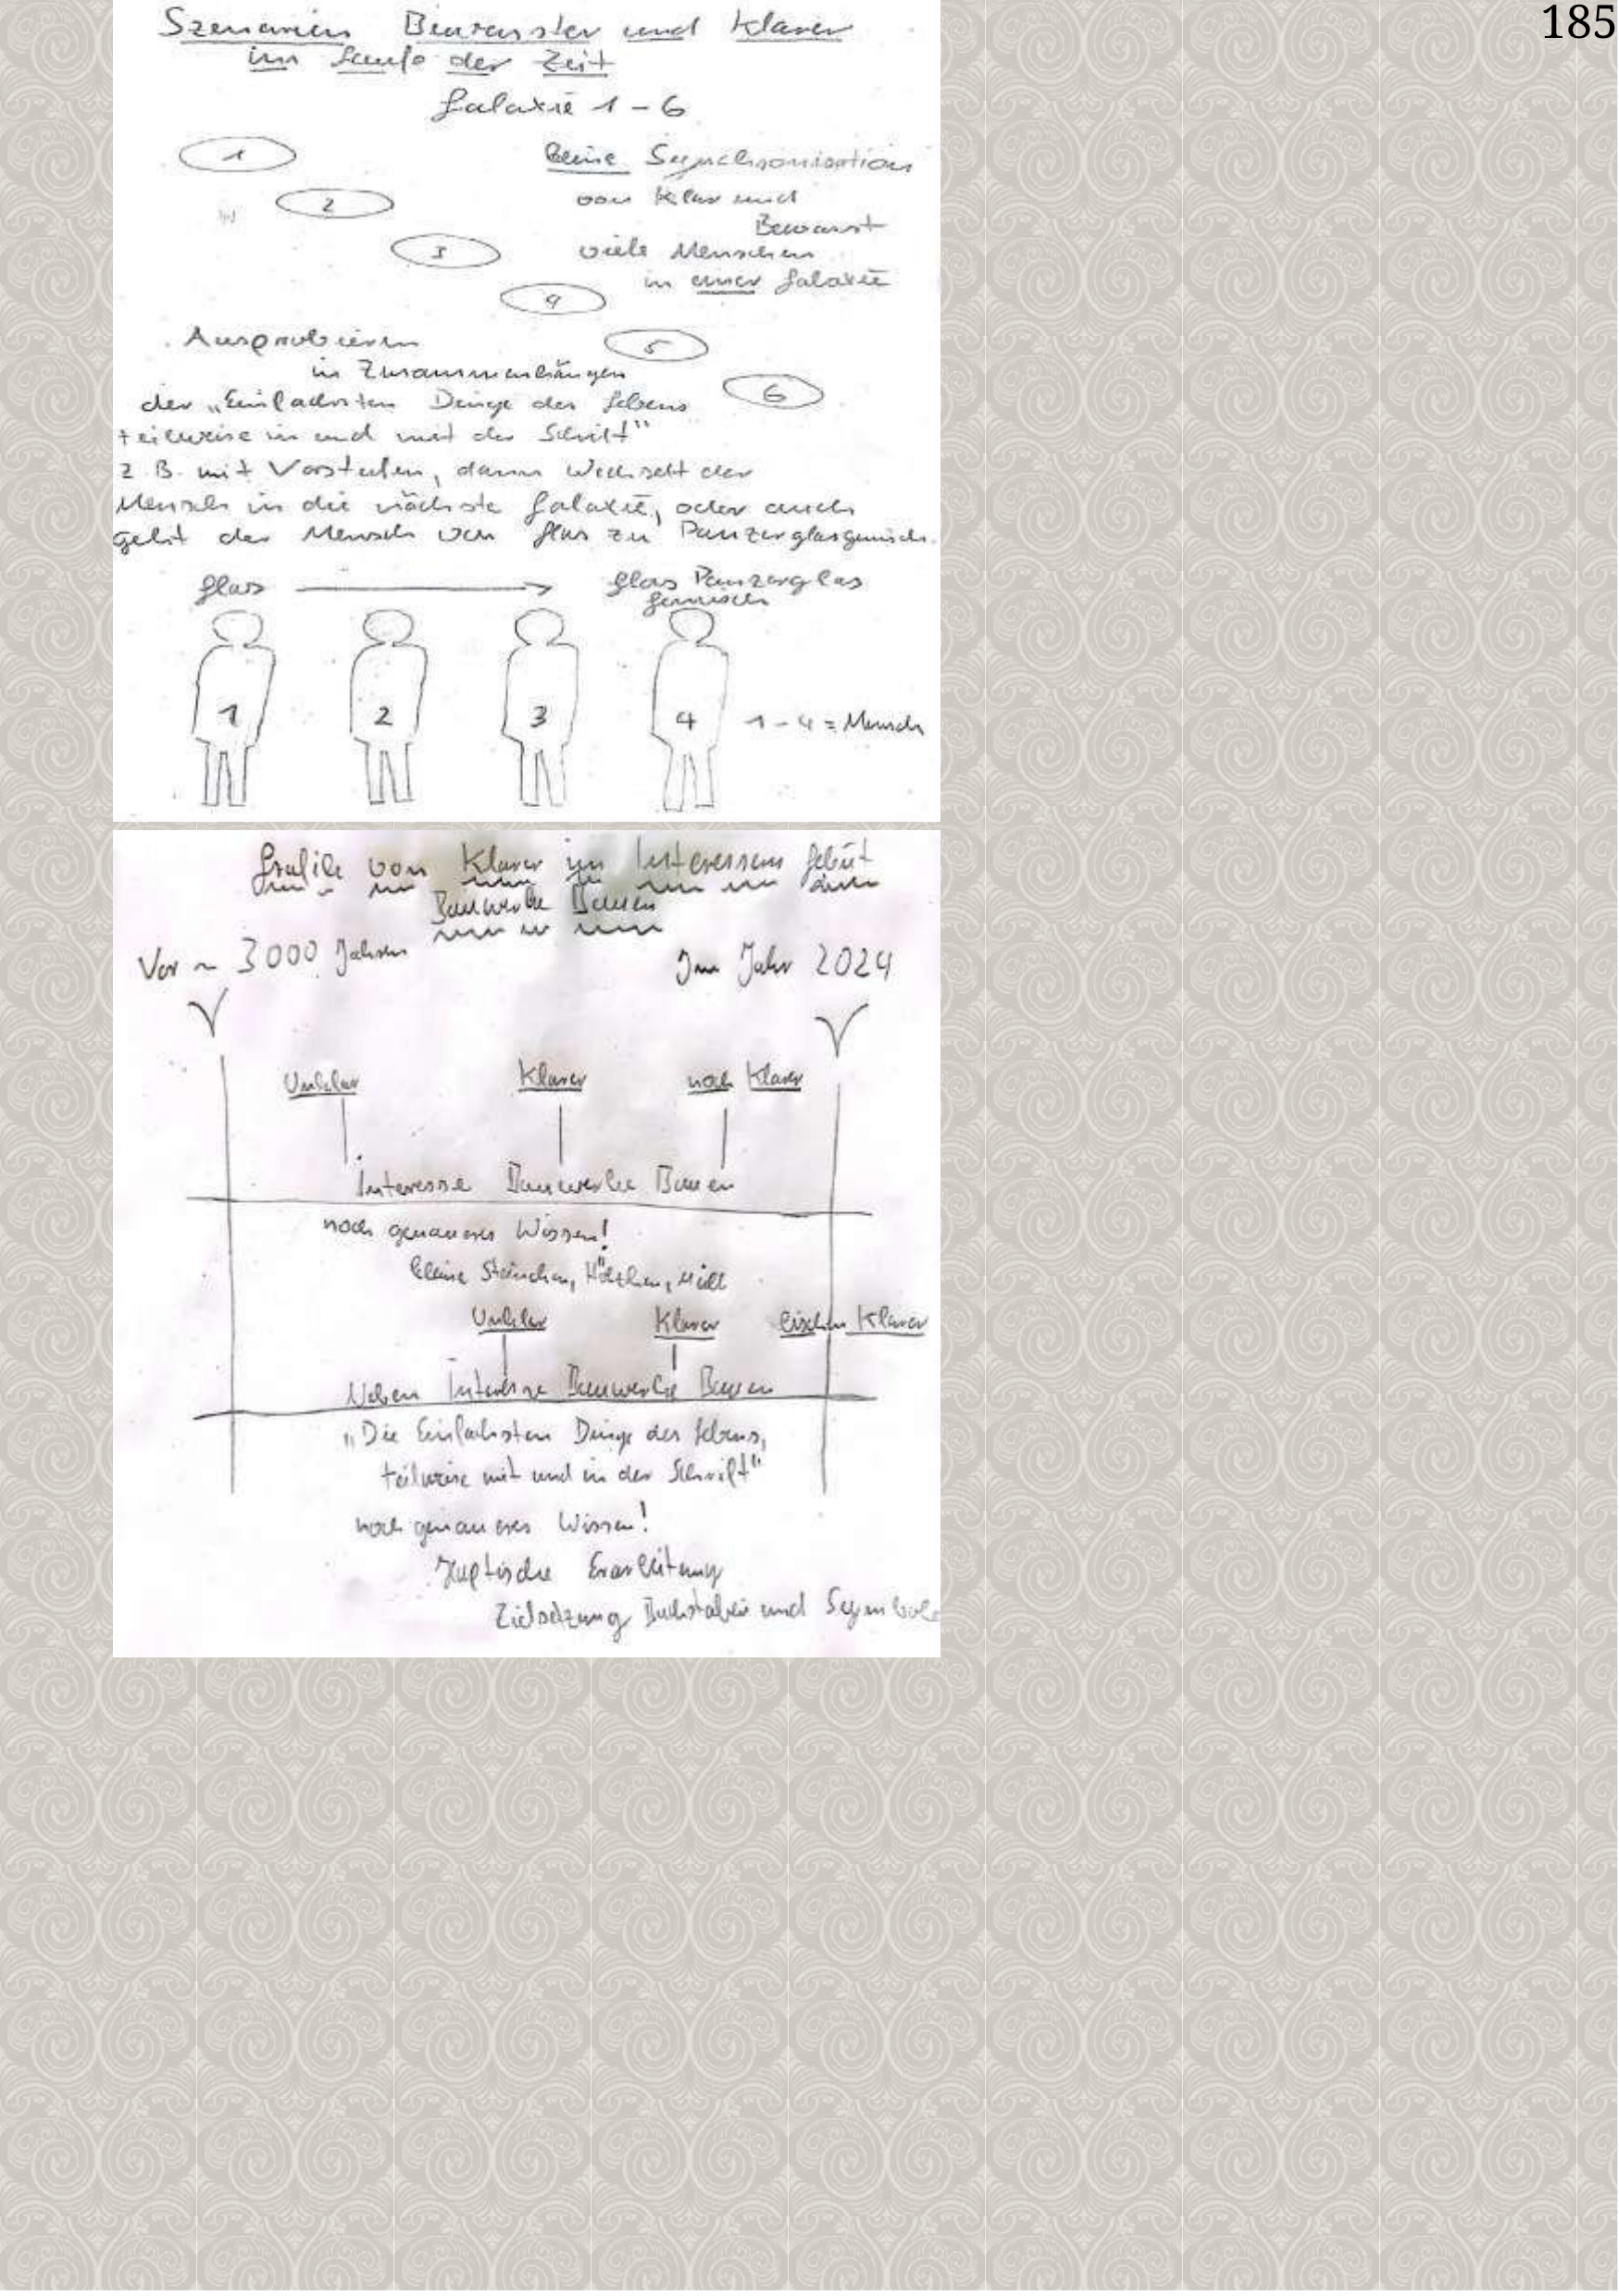 185
Szenarien Bewusster und Klarer
im Laufe der Zeit
Galaxie 1 - 6
1
Keine Synchronisation
von Klar und
2
Bewusst
3
viele Menschen
in einer Galaxie
4
Ausprobieren
5
in Zusammenhängen
6
der „Einfachsten Dinge des Lebens
teilweise in und mit der Schrift"
z.B. mit Vorstufen, dann Wechselt der
Mensch in die nächste Galaxie, oder auch
geht der Mensch von Glas zu Panzerglasgemisch.
Glas
Glas Panzerglas
Gemisch
1 2 3 4 1 - 4 = Mensch
Grafik von Klarer im Interessens Gebiet
Bauwerke Bauen
Vor ~ 3000 Jahren
Im Jahr 2024
Unklar Klarer noch Klarer
Interesse Bauwerke Bauen
noch genaueres Wissen!
kleine Steinchen, Hölzchen, Müll
Unklar Klarer bischen Klarer
Neben Interesse Bauwerke Bauen
„Die Einfachsten Dinge des Lebens,
teilweise mit und in der Schrift"
noch genaueres Wissen!
Erarbeitung
Zielsetzung Buchstaben und Symbole